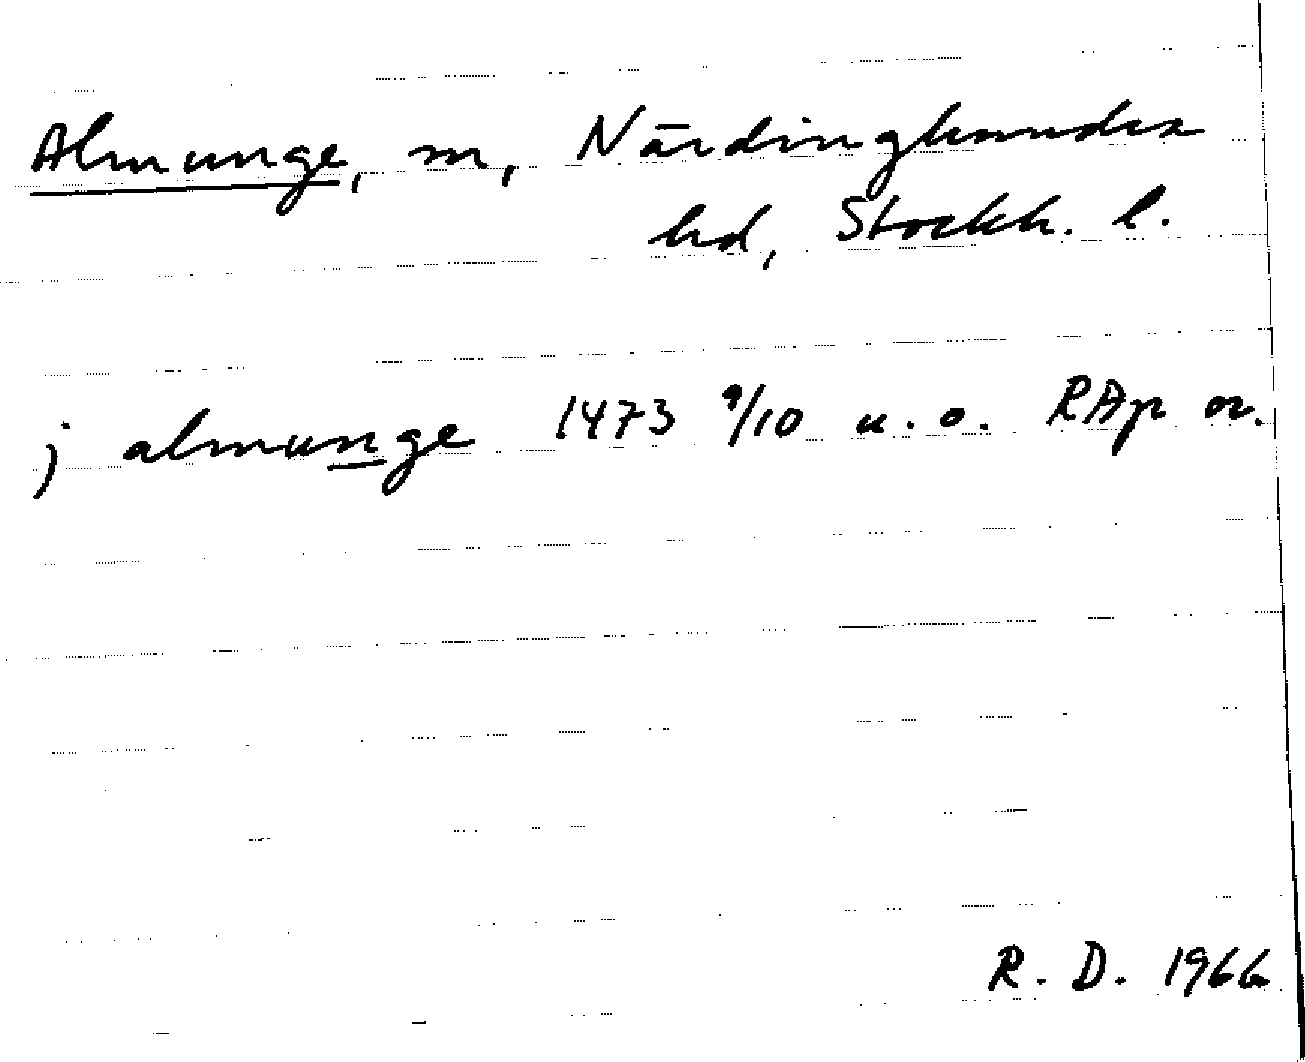 Almunge, sn, Närdinghundra
hd, Stockh. l.
j almunge 1473 9/10 u. o. RAp or.
R. D. 1966